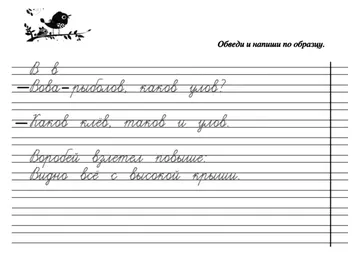 Обведи и напиши по образцу.
В в
—Вова–рыболов, каков улов?
—Каков клёв, таков и улов.
Воробей взлетел повыше:
Видно всё с высокой крыши.